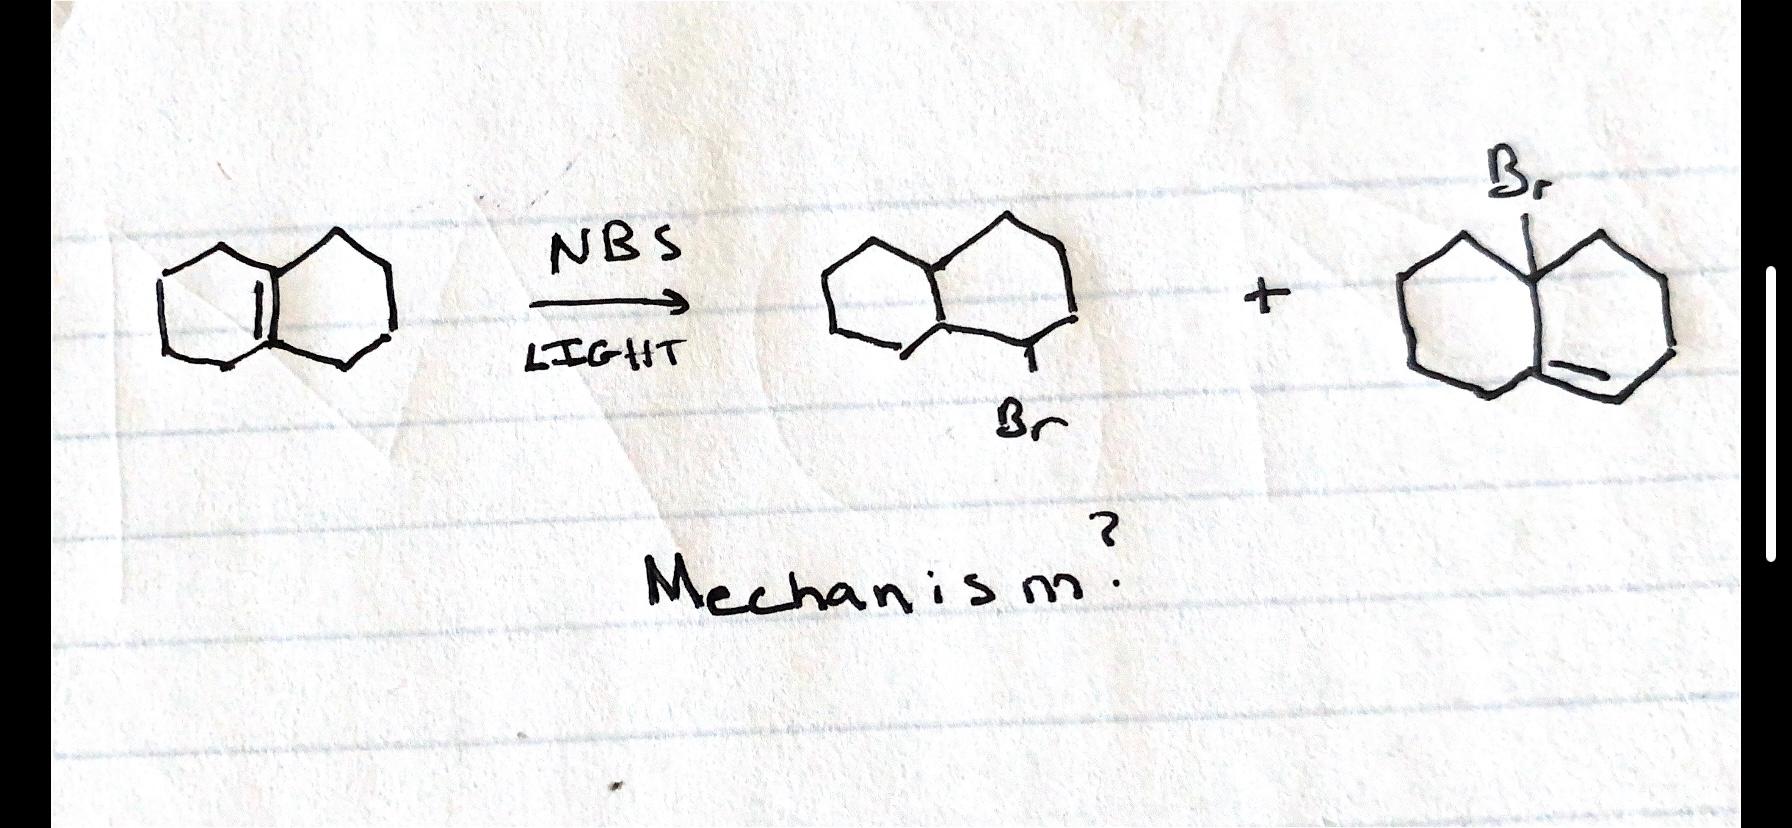 NBS
LIGHT
Br
+
Br
Mechanism?